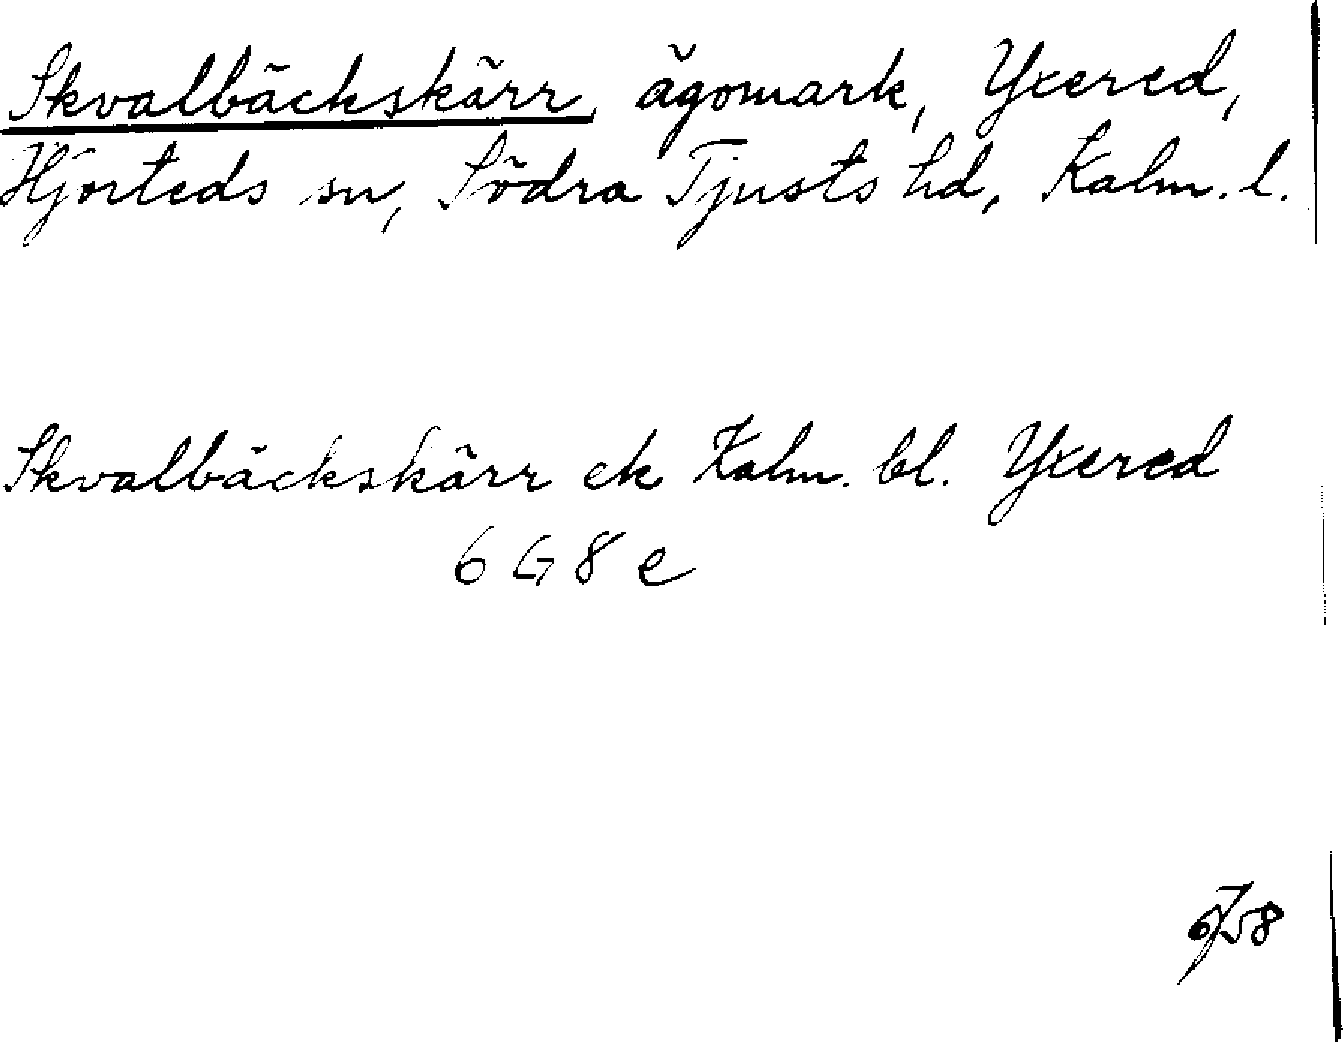 Skvalbäckskärr, ägomark, Yxered,
Hjorteds sn, Södra Tjusts hd, Kalm. l.
Skvalbäckskärr ek Kalm. bl. Yxered
6 G 8 e